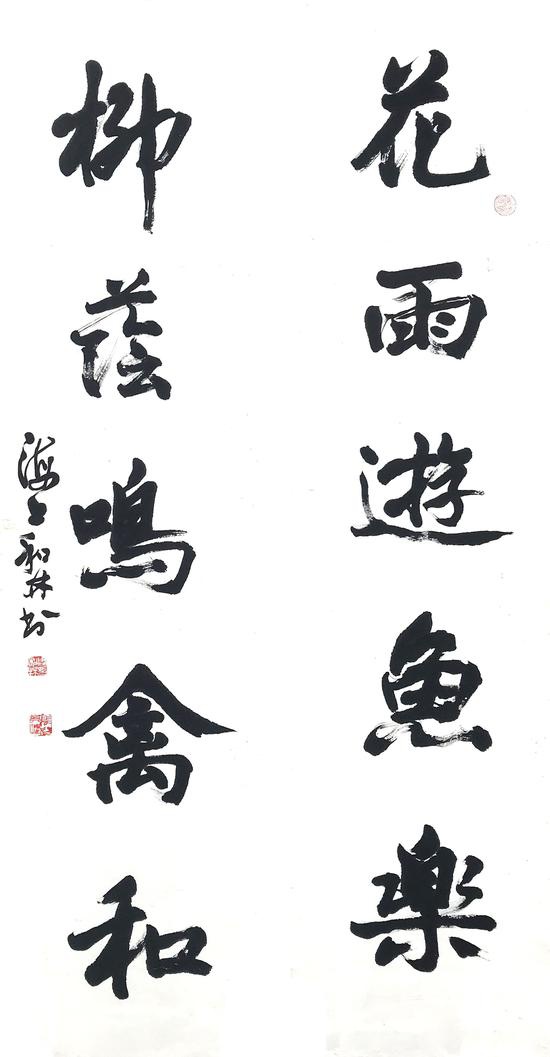 花雨遊魚樂
柳蔭鳴禽和
海上和林书